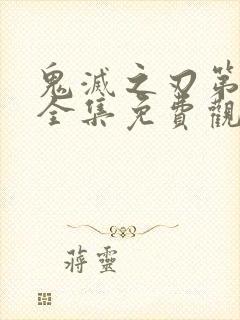 鬼滅之刃第
全集免費觀
蔣靈